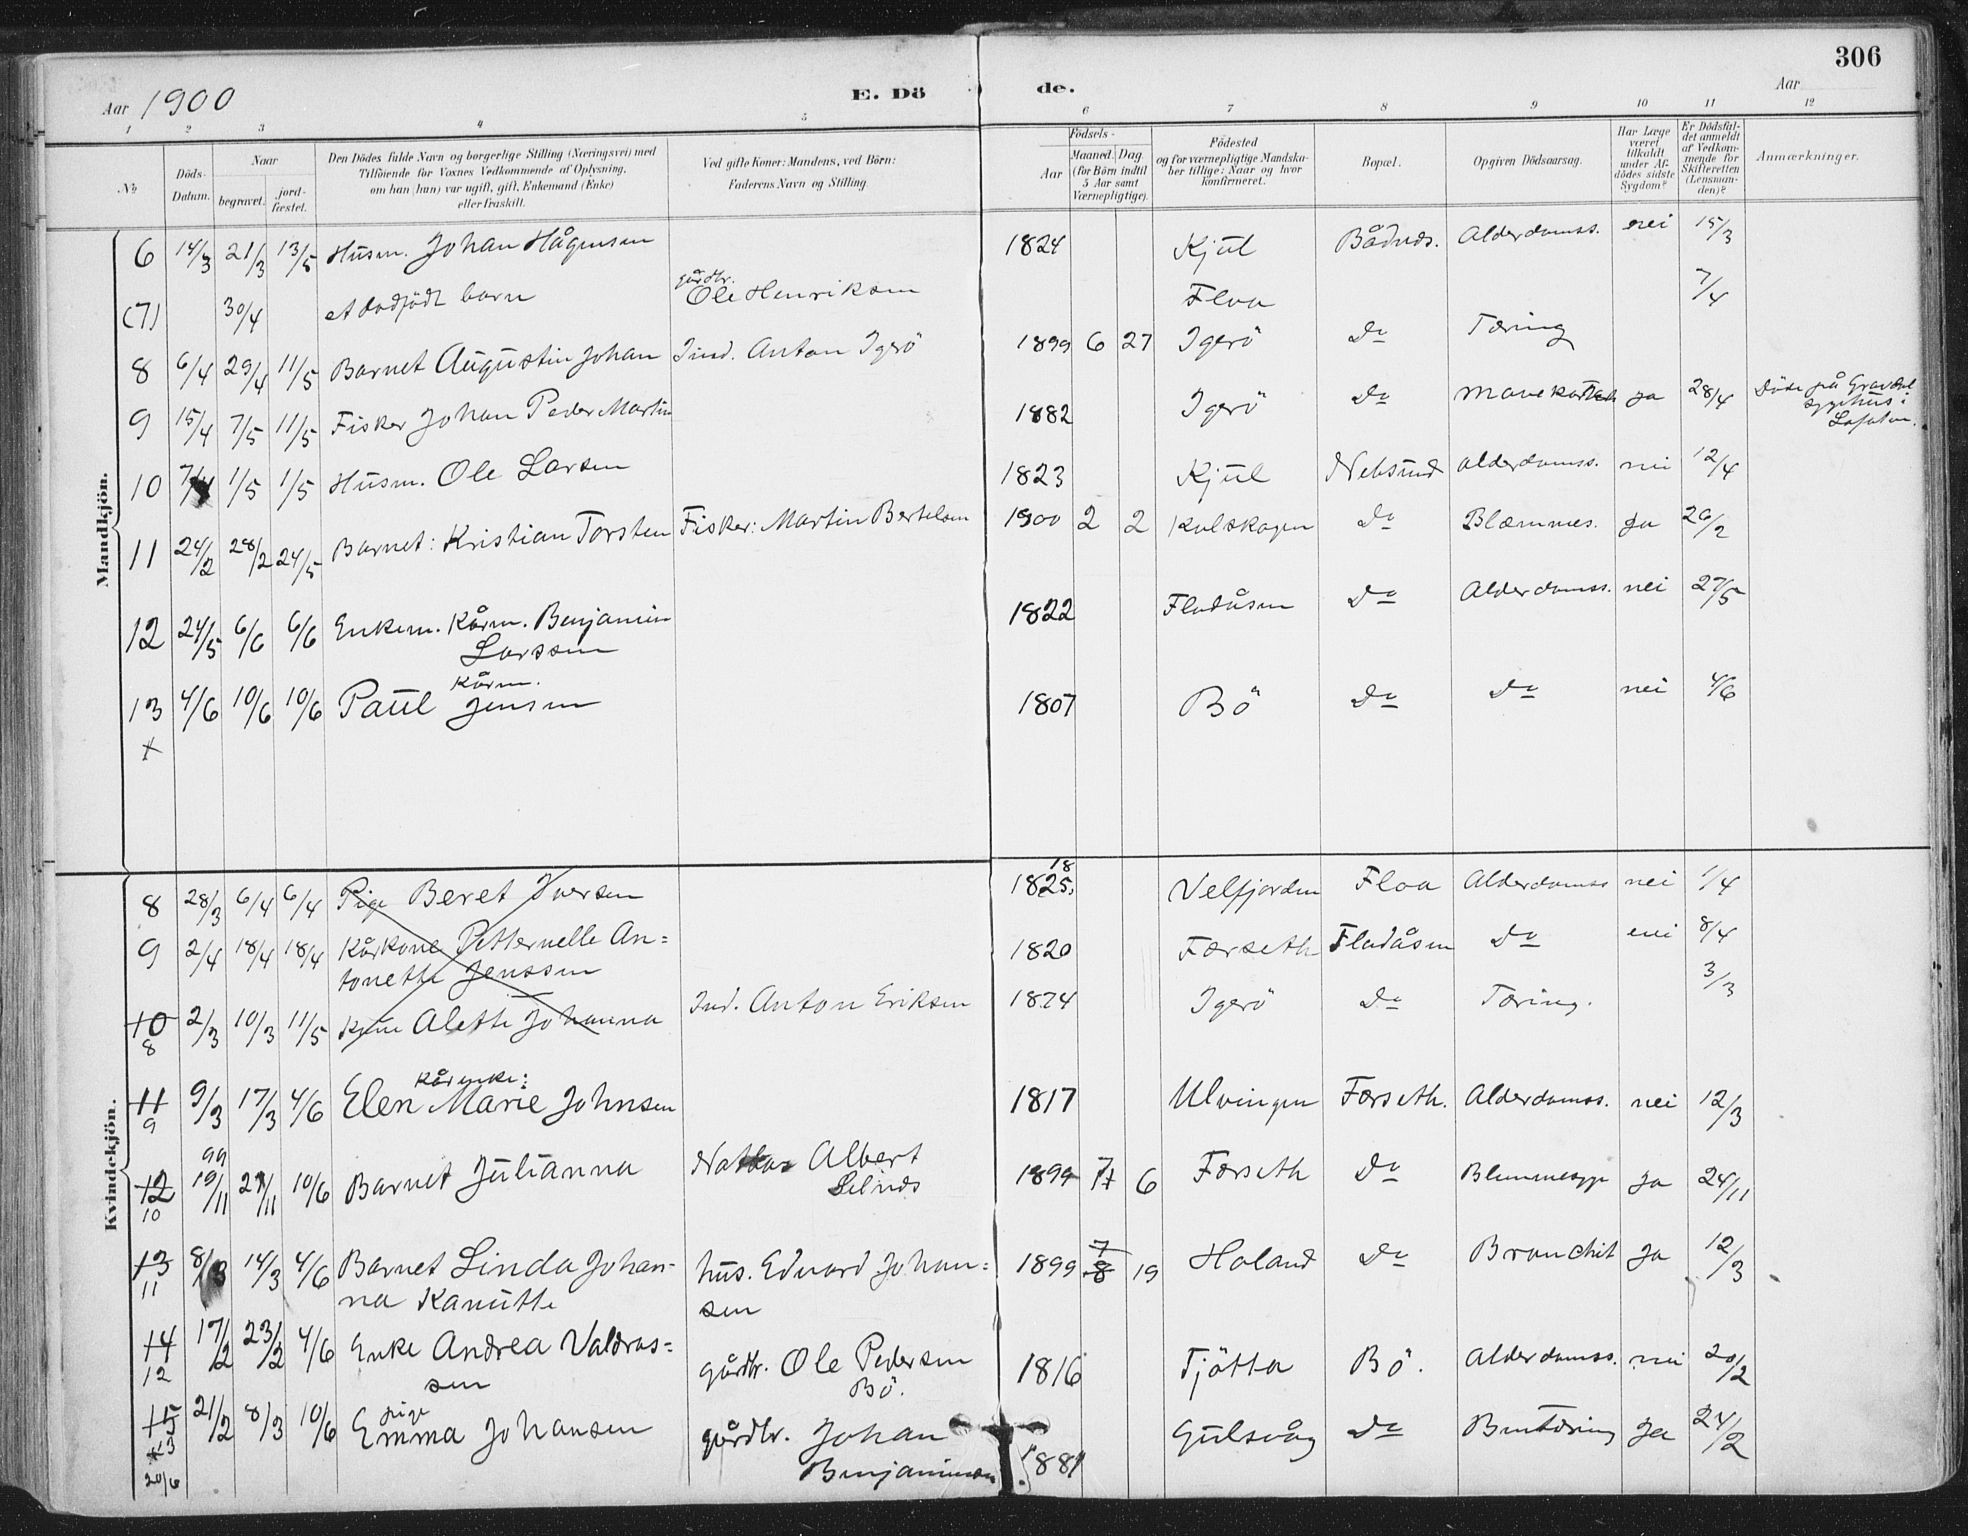 306
Aar 1900
E. Dö de.
Aar
1 2 3 4 5 6 7 8 9 10 11 12
№
Döds-Datum.
Naar
begravet.
jord-fæstet.
Den Dödes fulde Navn og borgerlige Stilling (Næringsvei) med
Tilföiende for Voxnes Vedkommende af Oplysning,
om han (hun) var ugift, gift, Enkemand (Enke)
eller fraskilt.
Ved gifte Koner: Mandens, ved Börn:
Faderens Navn og Stilling.
Födsels-
Aar
Maaned. Dag.
(for Börn indtil
5 Aar samt
Værnepligtige).
Födested
og for værnepligtige Mandska-
ber tillige: Naar og hvor
konfirmeret.
Bopæl.
Opgiven Dödsaarsag.
Har Læge
været
tilkaldt
under Af-
dödes sidste
Sygdom?
Er Dödsfal-
det anmeldt
af Vedkom-
mende for
Skifteretten
(Lensman-
den)?
Anmærkninger.
Mandkjön.
6 14/3 21/3 13/5 Husm. Johan Hågensen 1824 Kjul Bådnds. Alderdomss. nei 15/3
(7) 30/4 et dødfødt barn gårdbr. Ole Henriksen Floa 7/4
8 6/4 29/4 11/5 Barnet Augustin Johan Ind. Anton Igerö 1899 6 27 Igerö Do Tæring
9 15/4 7/5 11/5 Fisker Johan Peder Martin 1882 Igerö Do Mavekatarh ja 28/4 Döde på Gravdal
sygehus i
Lofoten.
10 7/4 1/5 1/5 Husm. Ole Larsen 1823 Kjul Nebsund Alderdomss. nei 12/4
11 24/2 28/2 24/5 Barnet: Kristian Torsten Fisker: Martin Bertelsen 1900 2 2 Kulskagen Do Blæmmes. Ja 26/2
12 24/5 6/6 6/6 Enkem. Kårm. Benjamin
Larssen 1822 Flodåsen Do Alderdomss. nei 27/5
13 4/6 10/6 10/6 Paul Kårm. Jensen 1807 Bö Do Do nei 4/6
x
Kvindekjön.
8 28/3 6/4 6/4 Pige Beret Iversen 1825. 18 Velfjorden Floa Alderdomss nei 1/4
9 2/4 18/4 18/4 Kårkone Petternelle An=
tonette Jenssen 1820 Forseth Flodåsen Do nei 8/4
10 8 2/3 10/3 11/5 Alette Johanna Ind. Anton Eriksen 1874 Igerö Do Tæring. 3/3
11 9 9/3 17/3 4/6 kårenke: Elen Marie Johnsen 1817 Ulvingen Forseth. Alderdomss. nei 12/3
12 10 99 19/11 27/11 10/6 Barnet Julianna Albert 1899 7 6 Forseth Do Ja 24/11
13 11 8/3 14/3 4/6 Barnet Linda Johan-
na Kanutte hus. Edvard Johan=
sen 1899 7 8 19 Holand Do Bronchit Ja 12/3
14 12 17/2 23/2 4/6 Enke Andrea Valdras=
sen gårdbr. Ole Pedersen
Bö. 1816 Tjötta Bö. Alderdomss. nei 20/2
15 13 21/2 8/3 10/6 pige Emma Johansen gårdbr. Johan
Benjaminsen 1881 Gulsvåg Do Bentæring Ja 24/2
20/6